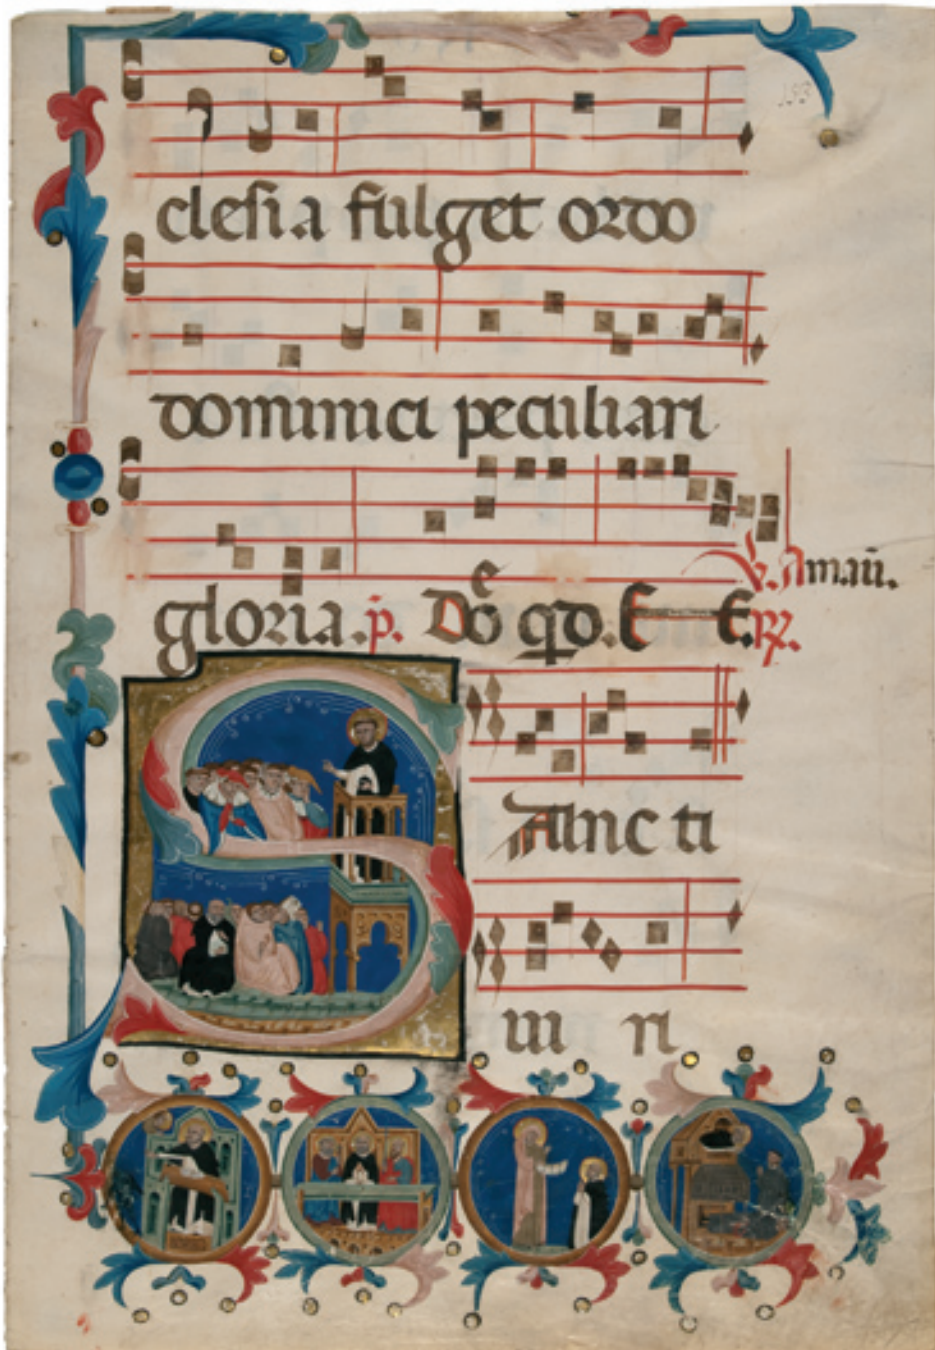 193
clesia fulget ordo
dominici peculiari
℣. Amaū.
gloria. p̄. Deo qd. E E. p℟.
SAnc ti
ui ri